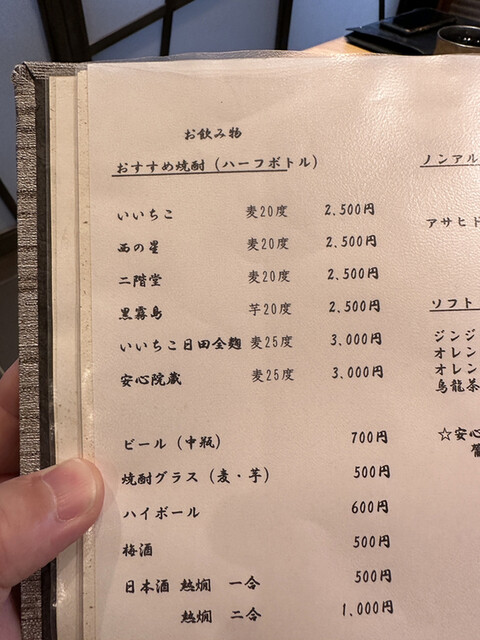 お飲み物
おすすめ焼酎(ハーフボトル)
いいちこ 麦20度 2,500円
西の星 麦20度 2,500円
二階堂 麦20度 2,500円
黒霧島 芋20度 2,500円
いいちこ日田全麹 麦25度 3,000円
安心院蔵 麦25度 3,000円
ビール(中瓶) 700円
焼酎グラス(麦・芋) 500円
ハイボール 600円
梅酒 500円
日本酒 熱燗 一合 500円
熱燗 二合 1,000円
ノンアル
アサヒド
ソフト
ジンジ
オレン
オレン
烏龍茶
☆安心